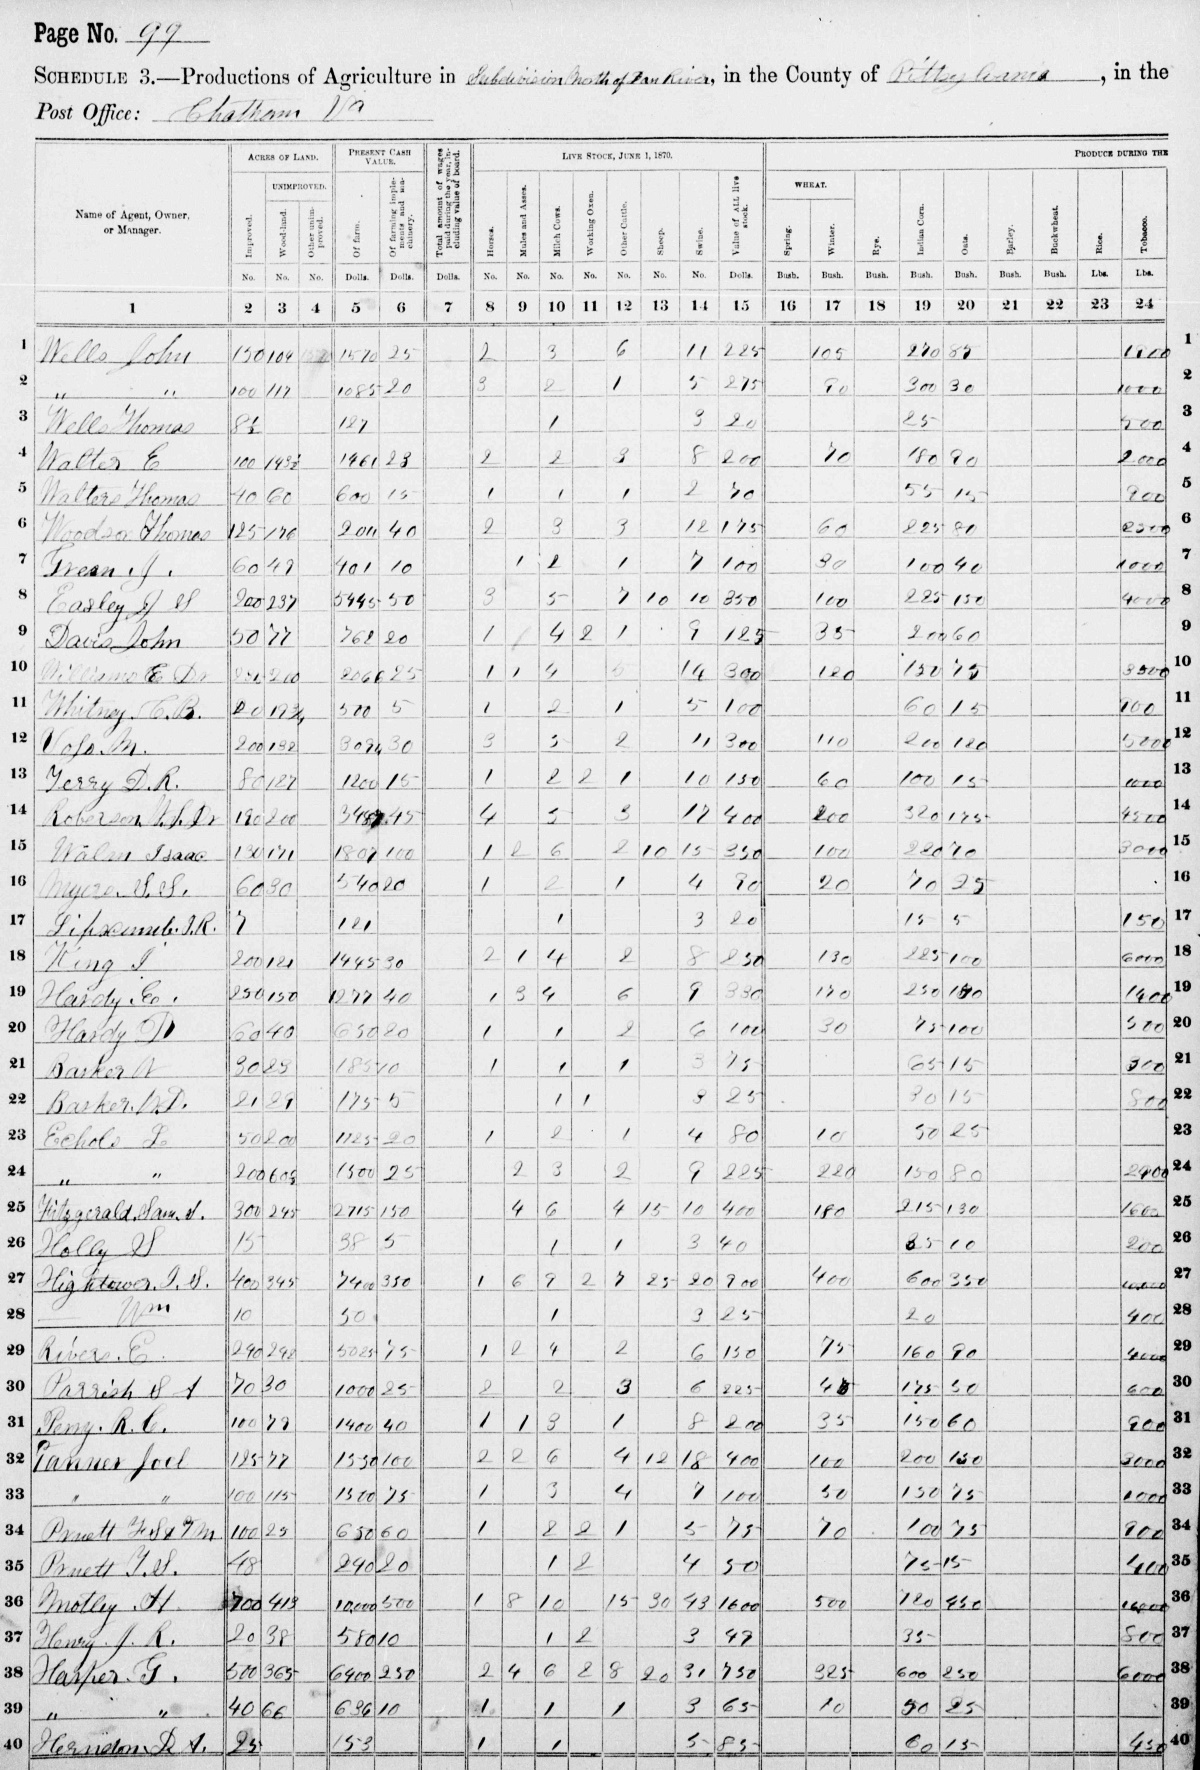 Page No. 99
SCHEDULE 3.—Productions of Agriculture in Subdivision North of Dan River, in the County of Pittsylvania, in the
Post Office: Chatham Va
Name of Agent, Owner, or Manager.
ACRES OF LAND.
PRESENT CASH VALUE.
Total amount of wages paid during the year, including value of board.
LIVE STOCK, JUNE 1, 1870.
PRODUCE DURING THE
UNIMPROVED.
WHEAT.
Improved. Wood-land. Other unimproved. Of farm. Of farming implements and machinery. Horses. Mules and Asses. Milch Cows. Working Oxen. Other Cattle. Sheep. Swine. Value of ALL live stock. Spring. Winter. Rye. Indian Corn. Oats. Barley. Buckwheat. Rice. Tobacco.
No. No. No. Dolls. Dolls. Dolls. No. No. No. No. No. No. No. Dolls. Bush. Bush. Bush. Bush. Bush. Bush. Bush. Lbs. Lbs.
1 2 3 4 5 6 7 8 9 10 11 12 13 14 15 16 17 18 19 20 21 22 23 24
1 Wells John 150 104 1570 25 2 3 6 11 225 105 270 1
2 „ „ 100 117 1085 20 3 2 1 5 275 90 300 30 1000 2
3 Wells Thomas 8½ 127 1 3 20 25 500 3
4 Walter E 100 1461 23 2 2 3 8 200 70 180 90 2000 4
5 Walters Thomas 40 60 600 15 1 1 1 2 70 55 15 900 5
6 Woodson Thomas 125 176 40 2 3 3 12 175 60 225 80 2500 6
7 Green J. 60 49 401 10 1 2 1 7 100 30 100 40 1000 7
8 Easley J S 200 237 5445 50 3 5 7 10 10 350 100 225 150 4000 8
9 Davis John 50 77 762 20 1 4 2 1 9 125 35 200 60 9
10 Williams E Dr 200 25 1 1 4 5 14 300 120 150 75 3500 10
11 Whitney C. B. 20 500 5 1 2 1 5 100 60 15 900 11
12 M. 200 192 30 3 5 2 11 300 110 200 120 5000 12
13 Terry D. R. 80 127 1200 15 1 2 2 1 10 150 60 100 15 1000 13
14 Roberson Dr 190 200 45 4 5 3 17 400 200 320 175 4500 14
15 Isaac 130 171 1807 100 1 2 6 2 10 15 350 100 220 70 3000 15
16 Myers S. S. 60 30 540 20 1 2 1 4 90 20 70 25 16
17 Lipscomb J. R. 7 121 1 3 20 15 5 150 17
18 King J 200 121 1445 30 2 1 4 2 8 250 130 225 100 6000 18
19 Hardy Eo. 250 150 1277 40 1 3 4 6 9 330 170 250 1400 19
20 Hardy D 60 40 650 20 1 1 2 6 100 30 75 100 500 20
21 Barker N 30 23 185 10 1 1 1 3 75 65 15 300 21
22 Barker D. 21 29 175 5 1 1 3 25 30 15 800 22
23 Echols L 50 200 1125 20 1 2 1 4 80 10 50 25 23
24 „ „ 200 605 1500 25 2 3 2 9 225 220 150 80 2400 24
25 Fitzgerald Sam. J. 300 245 2715 150 4 6 4 15 10 400 180 215 130 1600 25
26 Holly S 15 38 5 1 1 3 40 10 200 26
27 Hightower J. S. 400 345 7400 350 1 6 9 2 7 25 20 900 400 600 350 10,000 27
28 — Wm 10 50 1 3 25 20 400 28
29 Rivers E. 290 298 5025 75 1 2 4 2 6 150 75 160 90 4000 29
30 Parrish S A 70 30 1000 25 2 2 3 6 225 45 175 50 600 30
31 Perry R. C. 100 79 1400 40 1 1 3 1 8 200 35 150 60 900 31
32 Tanner Joel 125 77 1550 100 2 2 6 4 12 18 400 100 200 150 3000 32
33 „ „ 100 115 1500 75 1 3 4 7 100 50 150 75 1000 33
34 Pruett 100 25 650 60 1 2 2 1 5 75 70 100 75 900 34
35 Pruett T. S. 48 290 20 1 2 4 50 75 15 400 35
36 Motley H. 700 413 10,000 500 1 8 10 15 30 43 1600 500 450 36
37 Henry J. R. 20 38 580 10 1 2 3 49 35 500 37
38 Harper G. 500 365 6400 250 2 4 6 2 8 20 31 750 325 600 250 6000 38
39 „ „ 40 66 636 10 1 1 1 3 65 10 50 25 39
40 Herndon D. A. 25 153 1 1 5 85 60 15 450 40